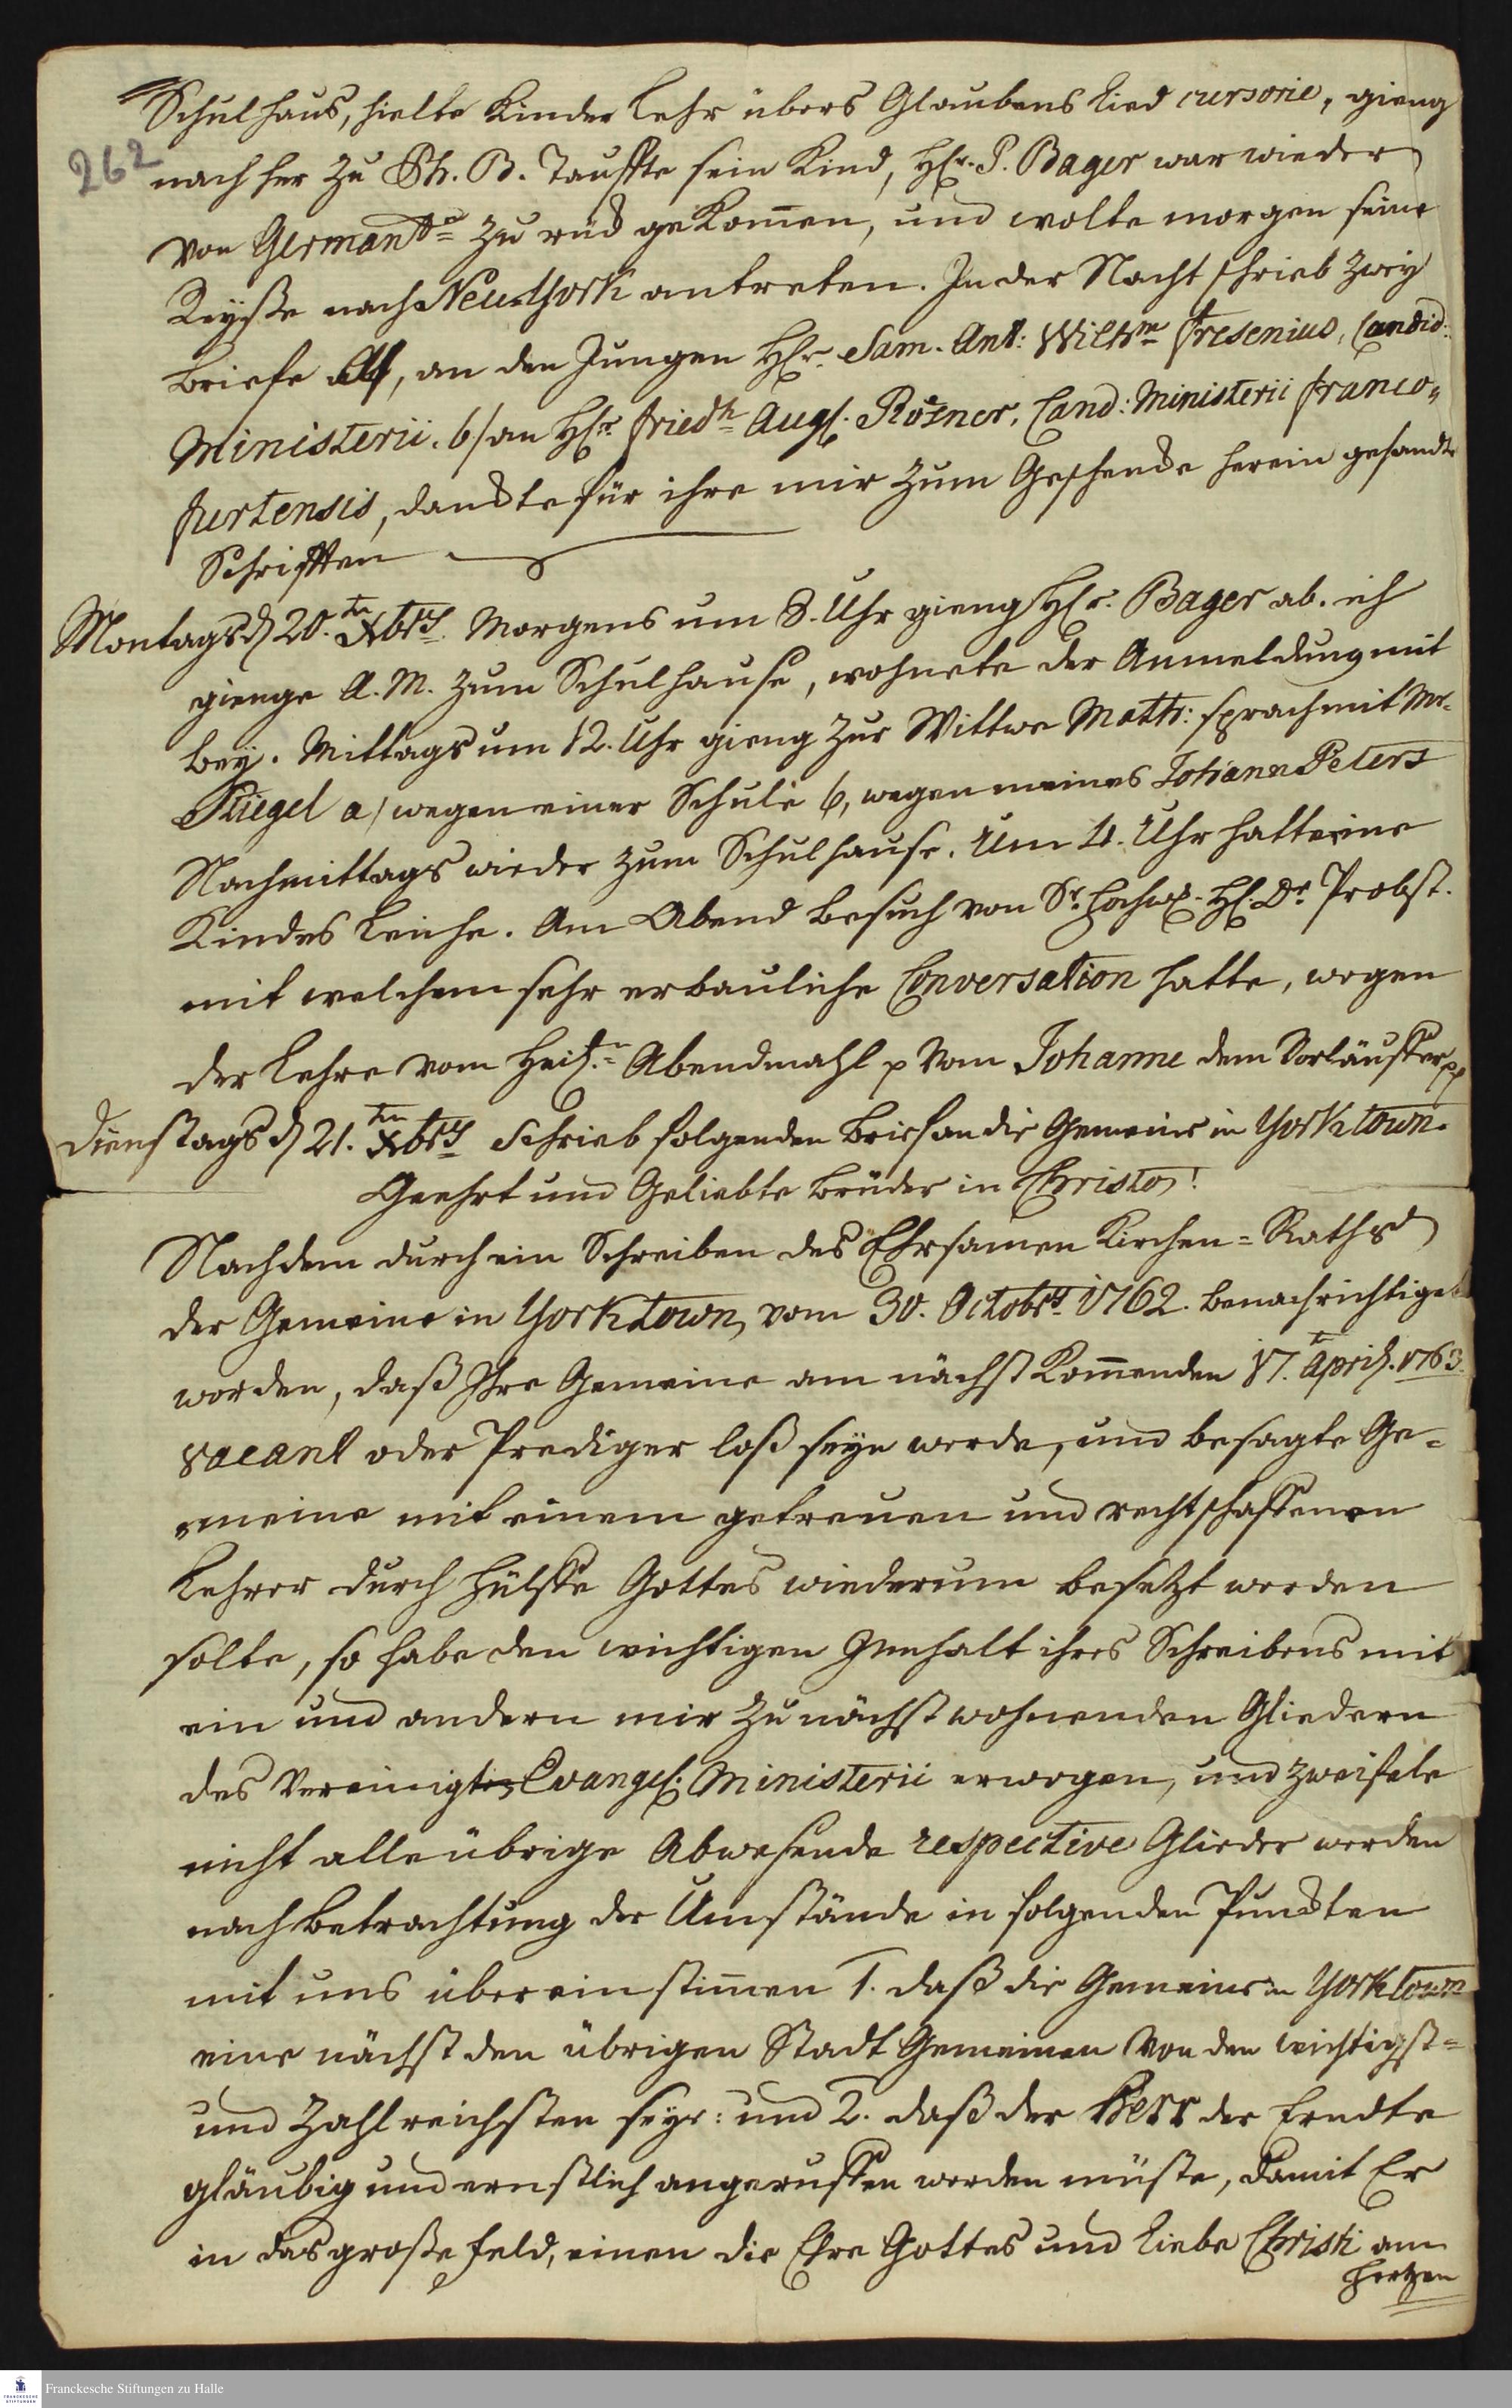 Schulhaus, hielte Kinder Lehr übers Glaubens Lied cursorie, gieng
262
nach her zu Ph. B. Tauffte sein Kind, H. P. Bager war wieder
von Germant zurück gekom̄en, und wolte morgen seine
Reyße nach Neu-York antreten. In der Nacht schrieb zwey
Briefe a, an den Jungen H. Sam. Ant: Wilhm Fresenius, Candid:
Ministerii. b/ an H. Friedr Aug. Rösner, Cand: Ministerii Franco-
furtensis, danckte für ihre mir zum Geschencke herein gesandte
Schrifften
Montags d 20.ten Xbrs. Morgens um 8. Uhr gieng H. Bager ab. ich
gienge A. M. zum Schulhause, wohnete der Anmeldung mit
bey. Mittags um 12. Uhr gieng zur Wittwe Matth: sprach mit Mr.
Stiegel a/ wegen einer Schule b, wegen meines Johann Peters
Nachmittags wieder zum Schulhause. Um 4. Uhr hatte eine
Kindes Leiche. Am Abend Besuch von Sr. Hochw. H. Dr Probst.
mit welchem sehr erbauliche Conversation hatte, wegen
der Lehre vom Heil. Abendmahl p vom Johanne dem Vorläuffer pp
Dienstags d 21.ten Xbrs Schrieb folgenden Brief an die Gemeine in Yorktown.
Geehrt und Geliebte Brüder in Christo!
Nachdem durch ein Schreiben des Ehrsamen Kirchen=Raths
der Gemeine in Yorktown, vom 30. Octobrs 1762. benachrichtiget
worden, daß Ihre Gemeine am nächst kom̄enden 17.t April. 1763.
vacant oder Prediger loß seyn werde, und besagte Ge=
meine mit einem getreuen und rechtschaffenen
Lehrer durch Hülffe Gottes wiederum besetzt werden
solte, so habe den wichtigen Innhalt ihres Schreibens mit
ein und andern mir zu nächst wohnenden Gliedern
des Vereinigten Evangel. Ministerii erwogen, und zweifele
nicht alle übrige Abwesende respective Glieder werden
nach Betrachtung der Umstände in folgenden Puncten
mit uns überein stim̄en 1. daß die Gemeine in Yorktown
eine nächst den übrigen Stadt Gemeinen von den wichtigst=
und zahlreichsten seye: und 2. daß der Herr der Erndte
gläubig und ernstlich angeruffen werden müste, damit Er
in das große Feld, einen die Ehre Gottes und Liebe Christi am
Hertzen
Franckesche Stiftungen zu Halle